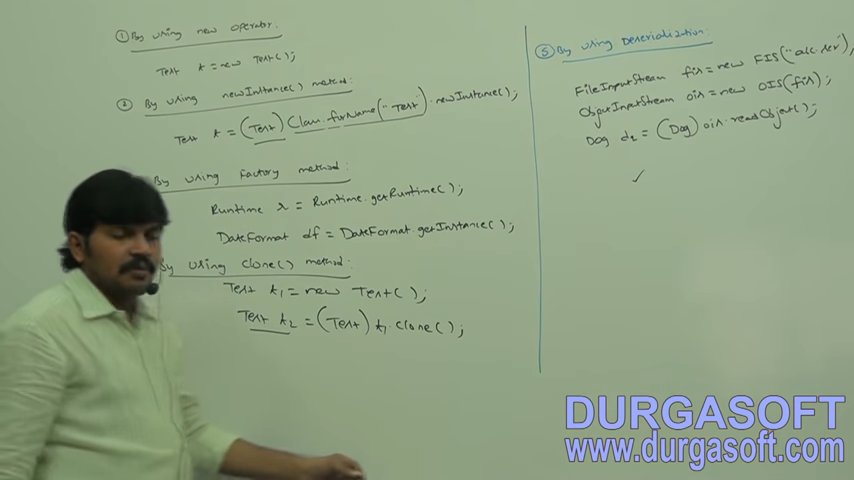 ① By using new operator.
Test t = new Test();
② By using newInstance() method:
Test t = (Test) Class.forName("Test").newInstance();
By using Factory method:
Runtime r = Runtime.getRuntime();
DateFormat df = DateFormat.getInstance();
By using clone() method:
Test t1 = new Test();
Test t2 = (Test) t1.clone();
⑤ By using Deserialization:
FileInputStream fis = new FIS("abc.ser");
ObjectInputStream ois = new OIS(fis);
Dog d2 = (Dog) ois.readObject();
DURGASOFT
www.durgasoft.com